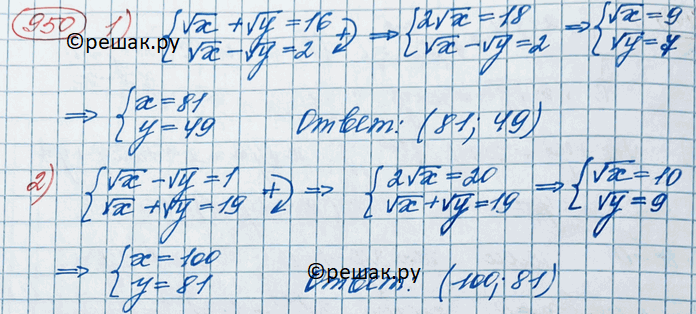 950 1) {√x + √y = 16 √x − √y = 2 +) ⇒ {2√x = 18 √x − √y = 2 ⇒ {√x = 9 √y = 7
©решак.ру
⇒ {x = 81 y = 49 Ответ: (81; 49)
2) {√x − √y = 1 √x + √y = 19 +) ⇒ {2√x = 20 √x + √y = 19 ⇒ {√x = 10 √y = 9
⇒ {x = 100 y = 81 Ответ: (100; 81)
©решак.ру